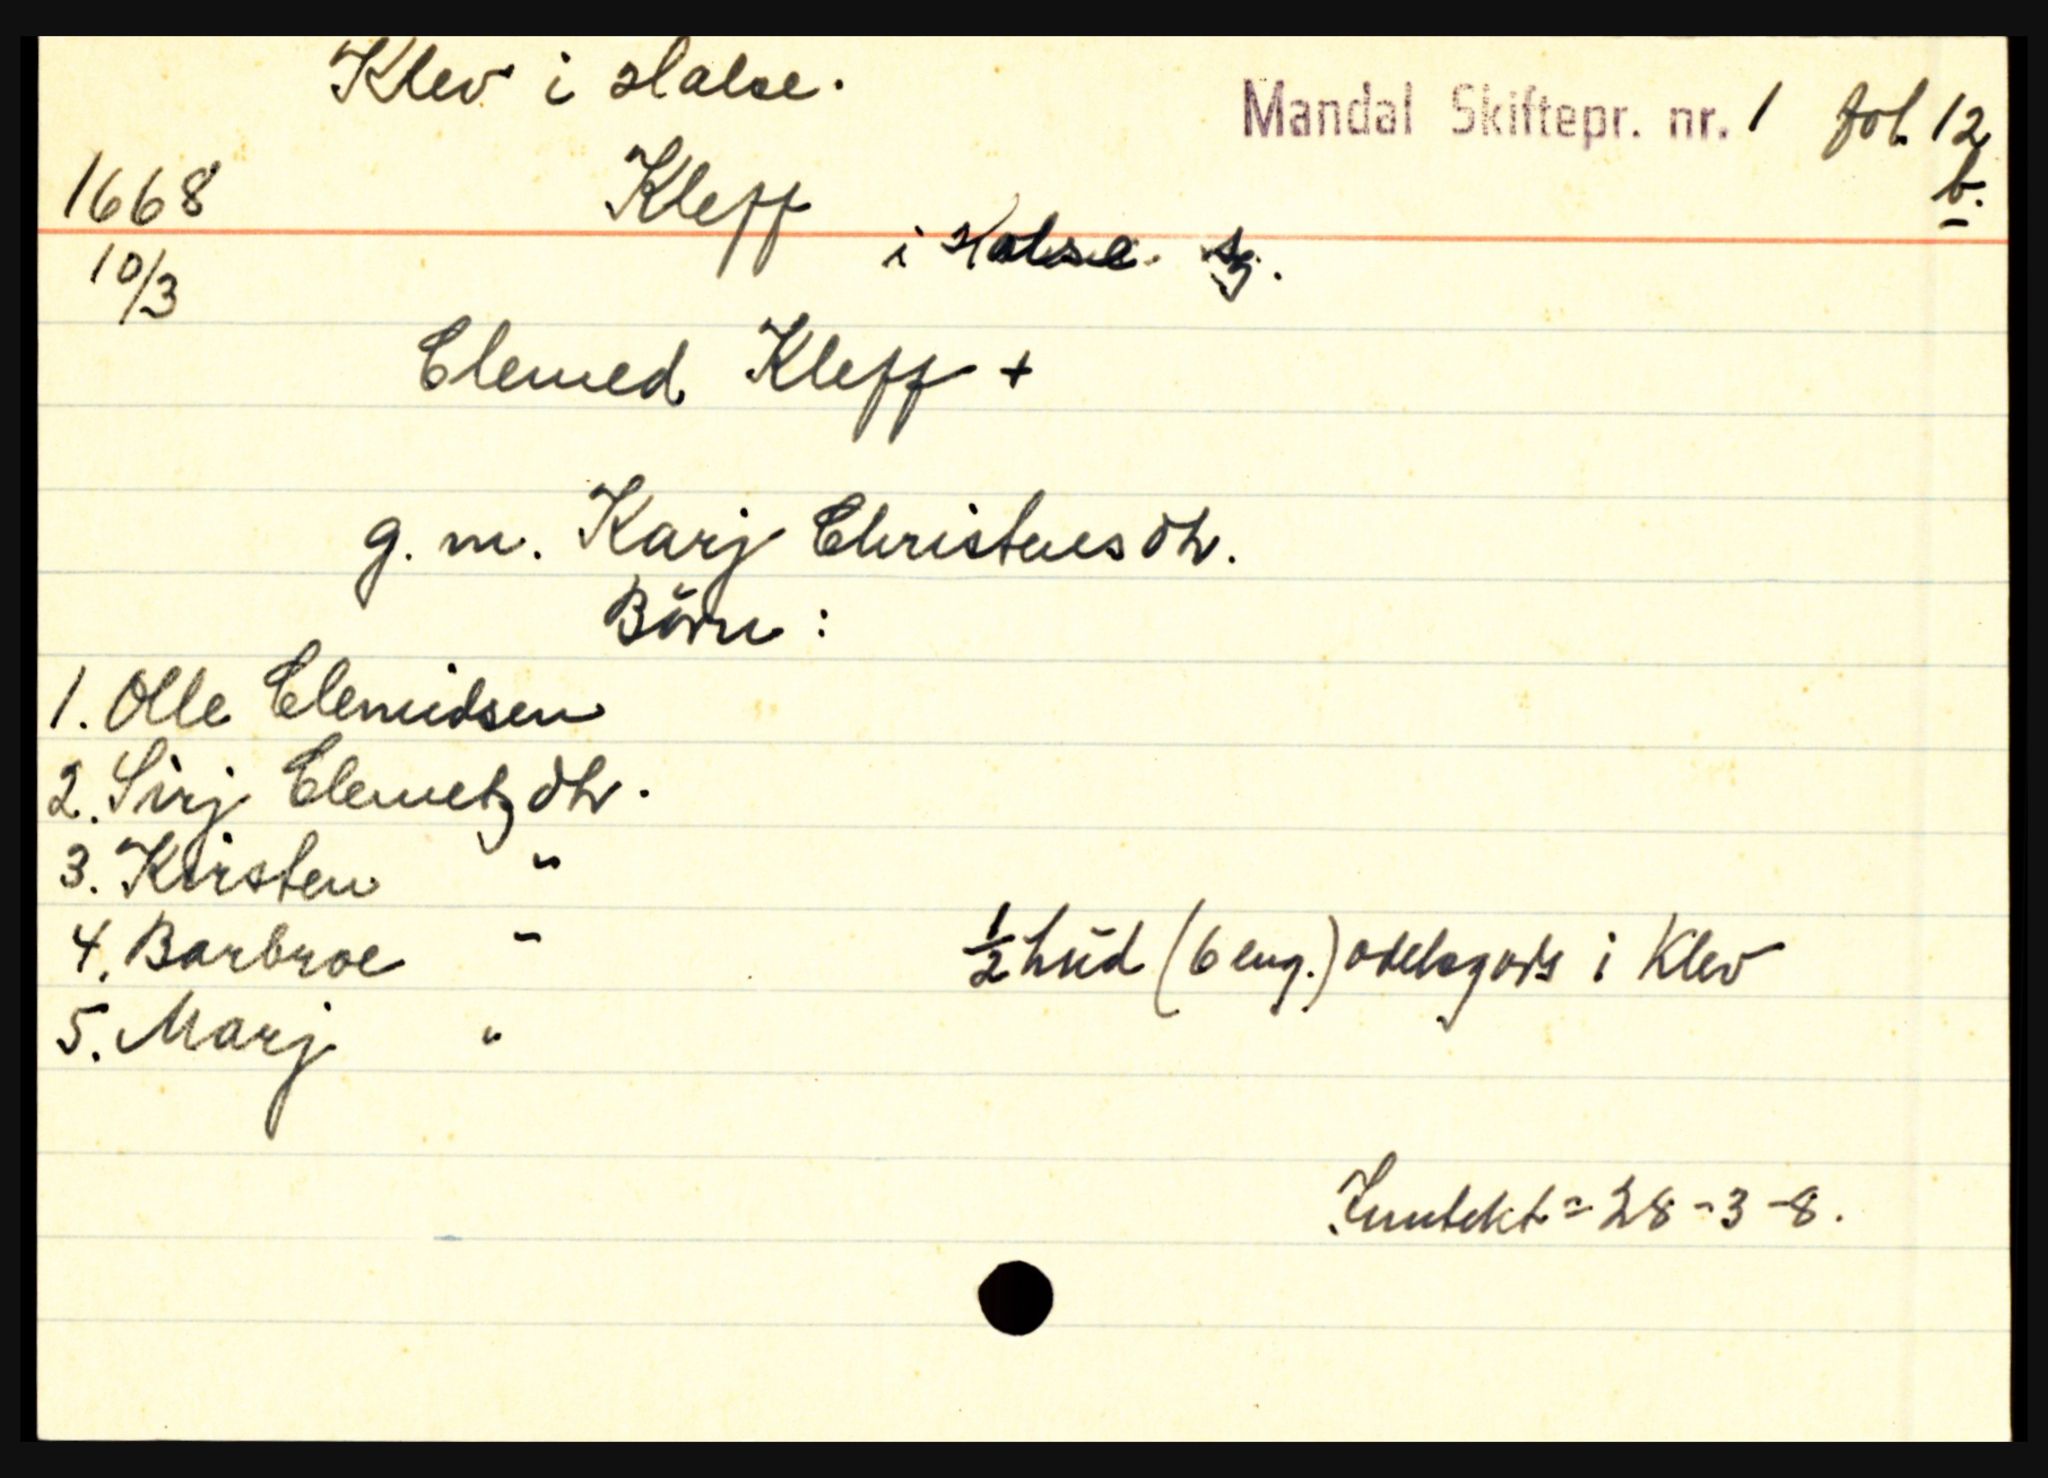 Klev i Halse.
Mandal Skiftepr. nr. 1 fol. 12 b.
1668 Kleff
10/3 i Halse sg.
Clemed Kleff +
g. m. Karj Christensdtr.
Börn :
1. Olle Clemidsen
2. Sirj Clemetzdtr.
3. Kirsten "
4. Barbroe "
½ hŭd (6 eng.) odelsgods i Klev
5. Marj "
Inntekt = 28 - 3 - 8.